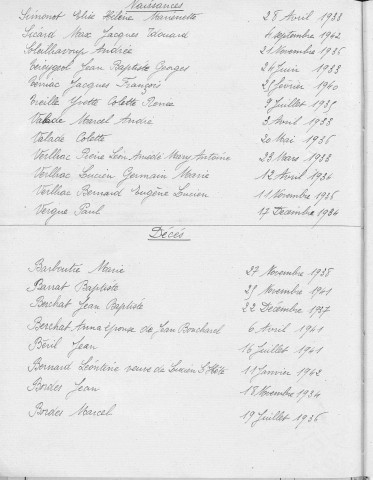 Naissances
Simonet Elise Hélène Marionette 28 Avril 1933
Sicard Max Jacques Edouard 4 septembre 1942
Andrée 21 Novembre 1935
Jean Baptiste Georges 24 Juin 1933
Verniac Jacques François 25 février 1940
Vieille Yvette Colette Renée 9 Juillet 1935
Valade Marcel André 3 Avril 1933
Valade Colette 20 Mai 1936
Veilhac Pierre Léon Amédé Mary Antoine 23 Mars 1938
Veilhac Lucien Germain Marie 12 Avril 1934
Veilhac Bernard Eugène Lucien 11 Novembre 1936
Vergne Paul 17 Décembre 1934
Décés
Barboutie Marie 27 Novembre 1938
Barrat Baptiste 29 Novembre 1941
Berchat Jean Baptiste 22 Décembre 1937
Berchat Anna épouse de Jean Bouchard 6 Avril 1941
Béril Jean 16 Juillet 1941
Bernard Léontine veuve de Lucien 11 Janvier 1942
Bordes Jean 18 Novembre 1934
Bordes Marcel 19 Juillet 1936